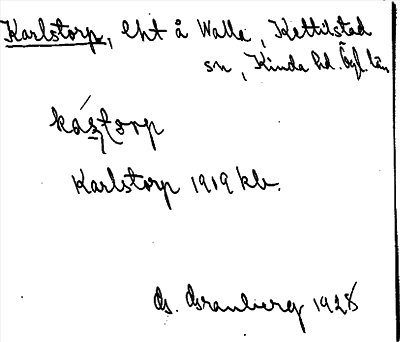 Karlstorp, lht å Walla, Kettilstad
sn, Kinda hd. Ögl. län
kás̱torp
Karlstorp 1919 kb.
G. Granberg 1928